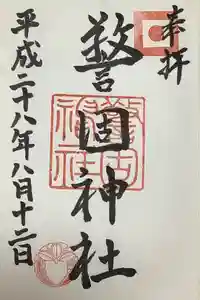 奉拝
警固神社
警固神社
平成二十八年八月十二日